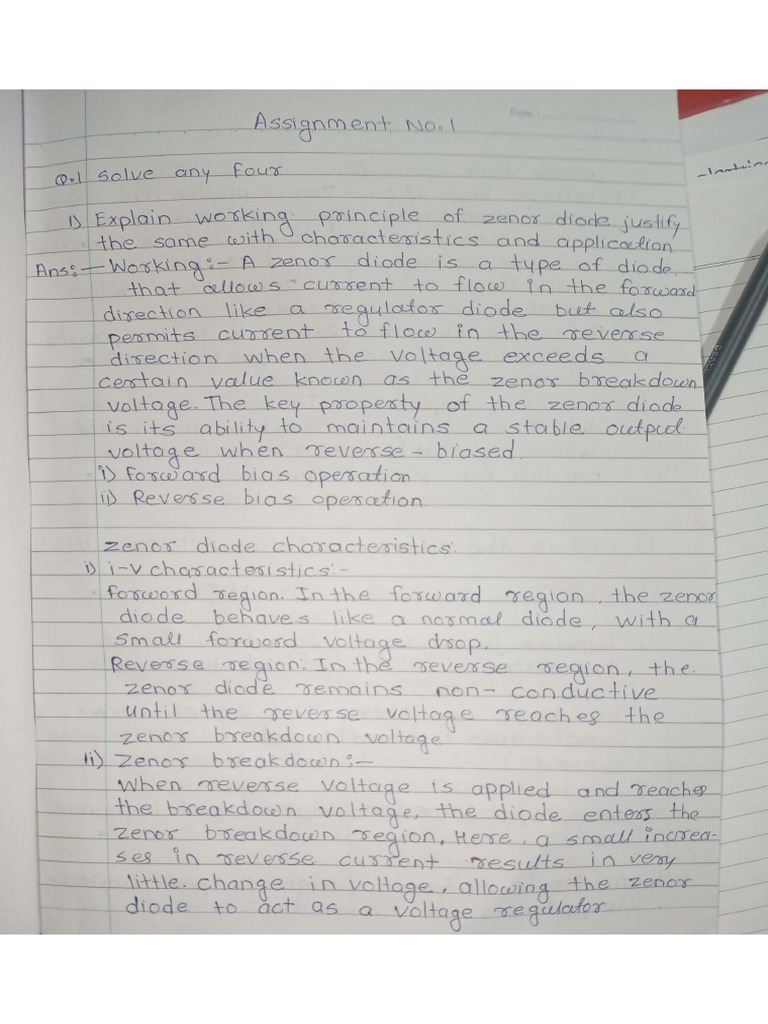 Assignment No.1
Q.1 Solve any four.
1) Explain working principle of zenor diode justify
the same with characteristics and application
Ans:- Working:- A zenor diode is a type of diode
that allows current to flow in the forward
direction like a regulator diode but also
permits current to flow in the reverse
direction when the voltage exceeds a
certain value known as the zenor breakdown
voltage. The key property of the zenor diode
is its ability to maintains a stable output
voltage when reverse-biased.
i) Forward bias operation
ii) Reverse bias operation
zenor diode characteristics.
i) i-v characteristics:-
forword region: In the forward region, the zenor
diode behaves like a normal diode, with a
small forword voltage drop.
Reverse region: In the reverse region, the
zenor diode remains non-conductive
until the reverse voltage reaches the
zenor breakdown voltage
ii) Zenor breakdown:-
When reverse voltage is applied and reaches
the breakdown voltage, the diode enters the
zenor breakdown region. Here, a small increa-
ses in reverse current results in very
little change in voltage, allowing the zenor
diode to act as a voltage regulator